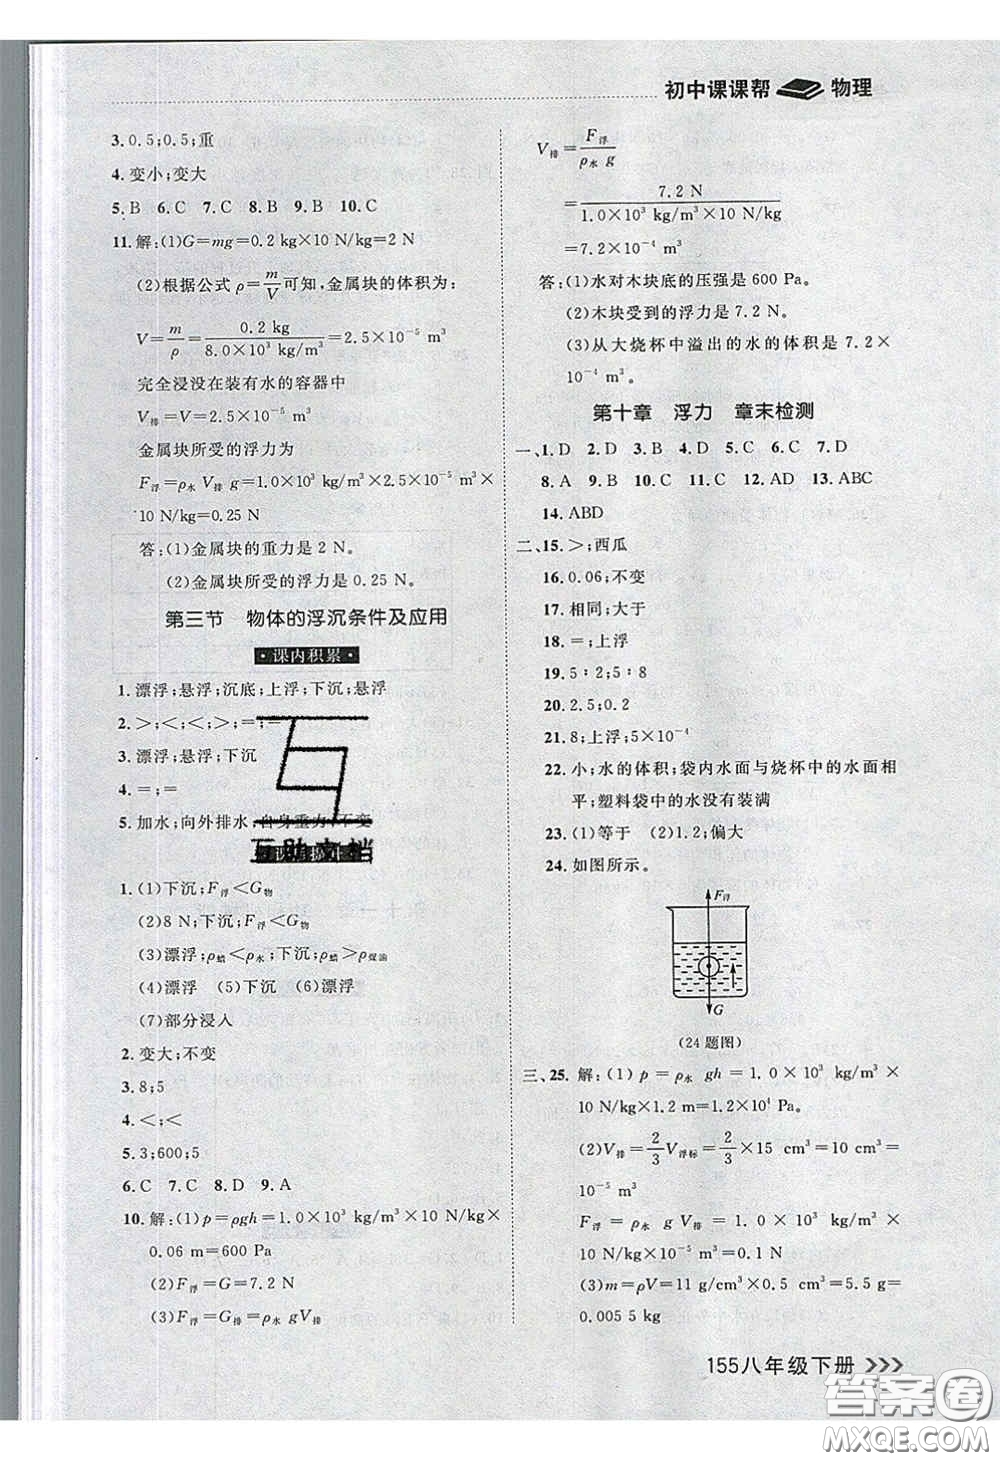 初中课课帮 物理
3. 0.5;0.5;重
4. 变小;变大
5. B 6. C 7. C 8. B 9. B 10. C
11. 解:(1)G=mg=0.2 kg×10 N/kg=2 N
(2)根据公式 ρ=m/V 可知,金属块的体积为:
V=m/ρ=0.2 kg/8.0×10³ kg/m³=2.5×10⁻⁵ m³
完全浸没在装有水的容器中
V排=V=2.5×10⁻⁵ m³
金属块所受的浮力为
F浮=ρ水 V排 g=1.0×10³ kg/m³×2.5×10⁻⁵ m³×
10 N/kg=0.25 N
答:(1)金属块的重力是 2 N。
(2)金属块所受的浮力是 0.25 N。
第三节 物体的浮沉条件及应用
·课内积累·
1. 漂浮;悬浮;沉底;上浮;下沉;悬浮
2. >;<;<;>;=;=
3. 漂浮;悬浮;下沉
4. =;=
5. 加水;向外排水;自身重力;不变
互助文档
1. (1)下沉;F浮<G物
(2)8 N;下沉;F浮<G物
(3)漂浮;ρ蜡<ρ水;下沉;ρ蜡>ρ煤油
(4)漂浮 (5)下沉 (6)漂浮
(7)部分浸入
2. 变大;不变
3. 8;5
4. <;<
5. 3;600;5
6. C 7. C 8. D 9. A
10. 解:(1)p=ρgh=1.0×10³ kg/m³×10 N/kg×
0.06 m=600 Pa
(2)F浮=G=7.2 N
(3)F浮=G排=ρ水 gV排
V排=F浮/ρ水 g
=7.2 N/1.0×10³ kg/m³×10 N/kg
=7.2×10⁻⁴ m³
答:(1)水对木块底的压强是 600 Pa。
(2)木块受到的浮力是 7.2 N。
(3)从大烧杯中溢出的水的体积是 7.2×
10⁻⁴ m³。
第十章 浮力 章末检测
一、1. D 2. D 3. B 4. D 5. C 6. C 7. D
8. A 9. B 10. C 11. C 12. AD 13. ABC
14. ABD
二、15. >;西瓜
16. 0.06;不变
17. 相同;大于
18. =;上浮
19. 5∶2;5∶8
20. 2.5;0.2
21. 8;上浮;5×10⁻⁴
22. 小;水的体积;袋内水面与烧杯中的水面相
平;塑料袋中的水没有装满
23. (1)等于 (2)1.2;偏大
24. 如图所示。
F浮
G
(24 题图)
三、25. 解:(1) p=ρ水 gh=1.0×10³ kg/m³×
10 N/kg×1.2 m=1.2×10⁴ Pa。
(2)V排=2/3V浮标=2/3×15 cm³=10 cm³=
10⁻⁵ m³
F浮=ρ水 g V排=1.0×10³ kg/m³×
10 N/kg×10⁻⁵ m³=0.1 N
(3)m=ρV=11 g/cm³×0.5 cm³=5.5 g=
0.005 5 kg
155八年级下册
答案圈
MXQE.COM